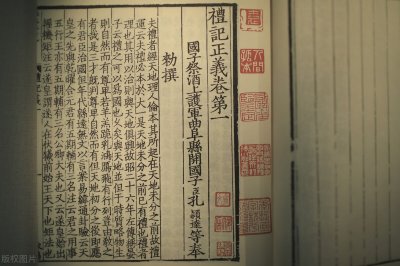 禮記正義卷第一
國子祭酒上護軍曲阜縣開國子臣孔穎達等奉
勑撰
夫禮者經天地理人倫本其所起在天地未分之前故禮
運云夫禮必本於大一是天地未分之前已有禮也禮者
理也其用以治則與天地俱興故昭二十六年左傳稱晏
子云禮之可以為國也久矣與天地並但于時質略物生
則自然而有尊卑若羊羔跪乳鴻鴈飛有行列豈由教之
者哉是三才旣判尊卑自然而有但天地初分之後即應
有君臣治國但年代緜遠無文以言案易緯通卦驗云天
皇之先與乾曜合元君有五期輔有三名注云君之用事
五行王亦有五期輔有三名公卿大夫也又云遂皇始出
握機矩注云遂皇謂遂人在伏犧前始王天下也矩法也
人間孤本
版权图片